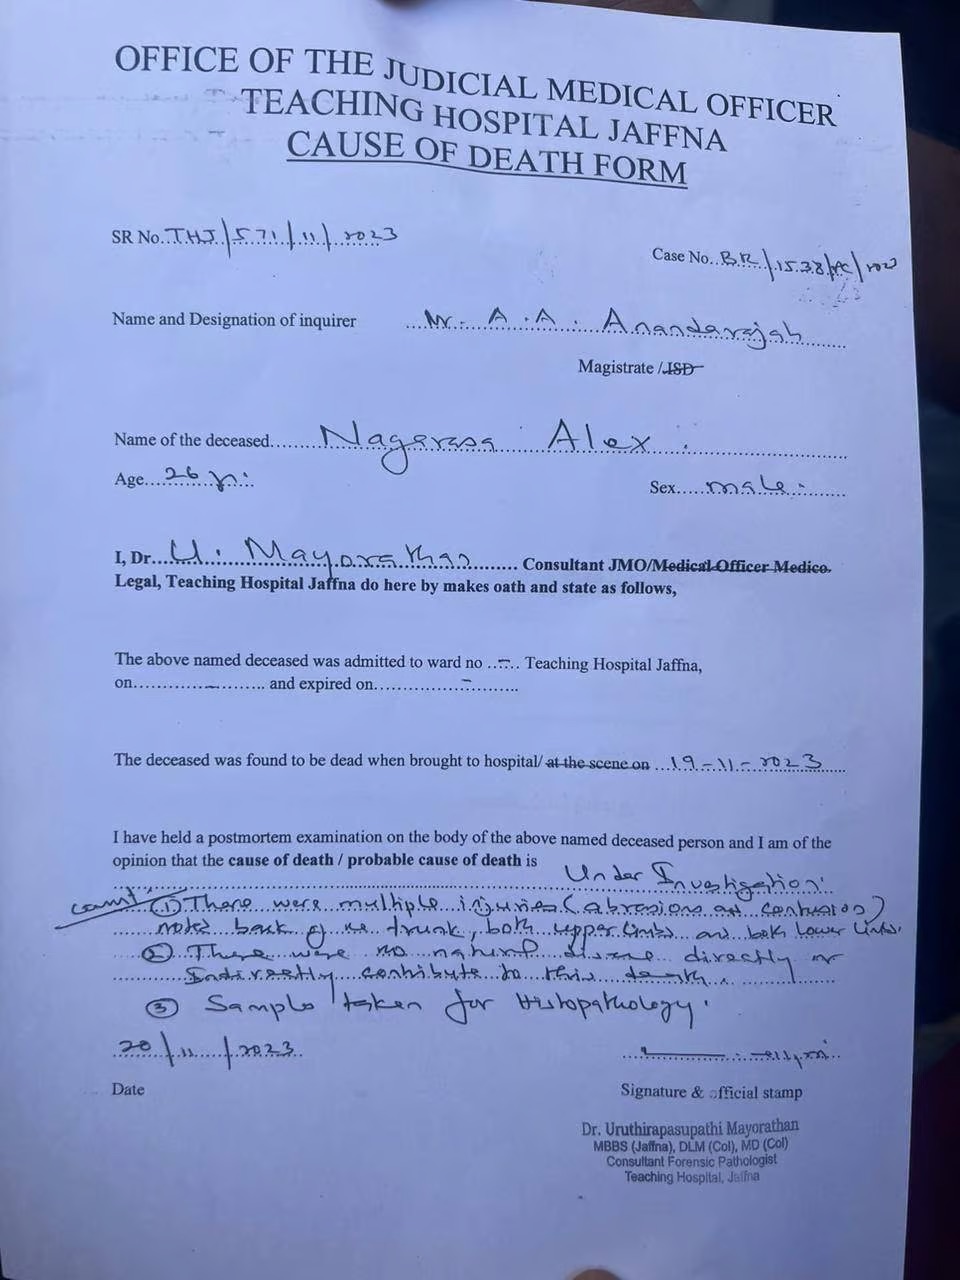 OFFICE OF THE JUDICIAL MEDICAL OFFICER
TEACHING HOSPITAL JAFFNA
CAUSE OF DEATH FORM
SR No. THJ/571/11/2023
Case No. BR/1538/PC/2023
Name and Designation of inquirer Mr. A.A. Anandarajah
Magistrate /JSD
Name of the deceased Nagarasa Alex.
Age 26 yrs
Sex male
I, Dr. U. Mayorathan Consultant JMO/Medical Officer Medico.
Legal, Teaching Hospital Jaffna do here by makes oath and state as follows,
The above named deceased was admitted to ward no - Teaching Hospital Jaffna,
on - and expired on -
The deceased was found to be dead when brought to hospital/ at the scene on 19-11-2023
I have held a postmortem examination on the body of the above named deceased person and I am of the
opinion that the cause of death / probable cause of death is Under Investigation.
(1) There were multiple injuries (abrasions and contusion)
noted back of the trunk, both upper limbs and both lower limbs.
(2) There were no natural disease directly or
Indirectly contribute to this death.
(3) Sample taken for Histopathology.
20/11/2023
Date
Signature & official stamp
Dr. Uruthirapasupathi Mayorathan
MBBS (Jaffna), DLM (Col), MD (Col)
Consultant Forensic Pathologist
Teaching Hospital, Jaffna